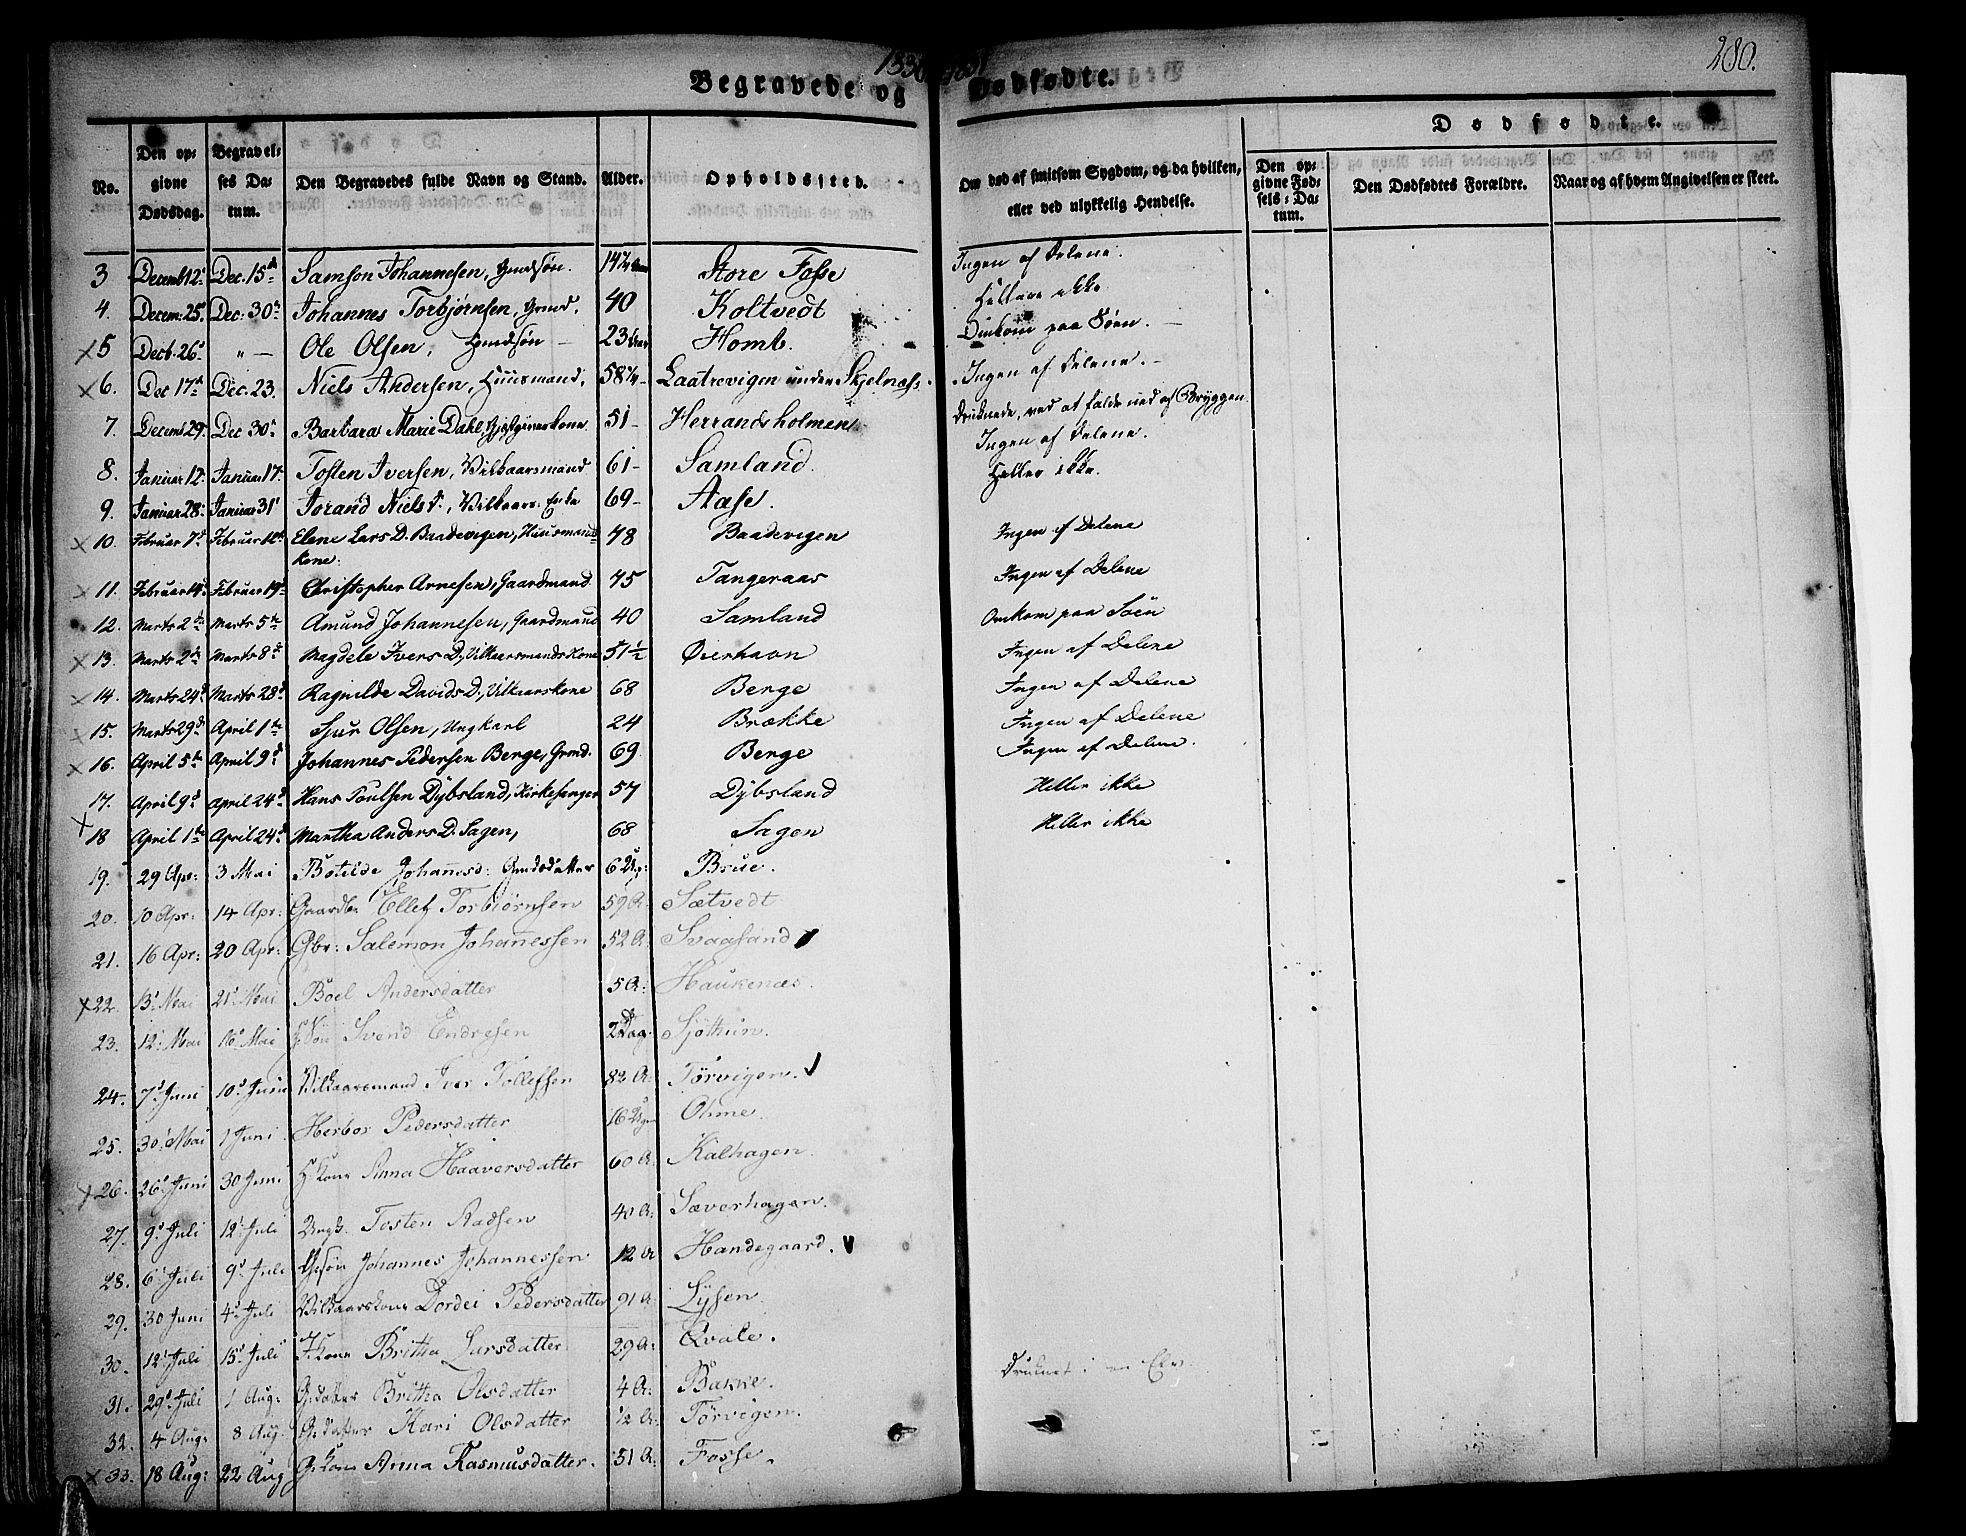 280.
Begravede og Dødfødte.
Dødfødte.
No.
Den opgivne Dødsdag.
Begravelses Datum.
Den Begravedes fulde Navn og Stand.
Alder.
Opholdssted.
Om død af smitsom Sygdom, og da hvilken, eller ved ulykkelig Hendelse.
Den opgivne Fødsels-Datum.
Den Dødfødtes Forældre.
Naar og af hvem Angivelsen er skeet.
3 Decemb 12. Dec. 15de Samson Johannesen, Gmdsøn. Store Fosse Ingen af Delene.
4. Decem: 25. Dec: 30te Johannes Torbjørnsen, Gmd. 40 Koltvedt
5 Decb. 26. " — Ole Olsen, Gmdsøn 23 Homb. Omkom paa Søen.
6. Dec 17de Dec. 23. Niels Andersen, Huusmand, 58 under Skjelnæs. Ingen af Delene.
7. Decemb 29. Dec 30te Barbara Marie Dahl, 51 Herrandsholmen Druknede, ved at falde ned af Bryggen.
8. Januar 12. Januar 17. Tosten Iversen, Vilkaarsmand 61 Samland. Ingen af Delene.
9. Januar 28. Januar 31 Torand Niels D., Vilkaars Enke 69 Aase. Heller ikke.
10. Februar 7d Februar Elene Lars D. Baadevigen, Huusmands kone. 78 Baadevigen Ingen af Delene
11. Februar 14. Februar 19. Christopher Arnesen, Gaardmand 75 Tangeraas Ingen af Delene
12. Marts 2den Marts 5te Amund Johannesen, Gaardmand 40 Samland Omkom paa Søen
13. Marts 2den Marts 8d Magdele Ivers D., Vilkaarsmands Kone 51½ Øierhavn Ingen af Delene
14. Marts 24d Marts 28d Ragnilde Davids D., Vilkaarskone 68 Berge Ingen af Delene
15. Marts 29d April 1te Sjur Olsen, Ungkarl 24 Brække Ingen af Delene
16. April 5te April 9d Johannes Pedersen Berge, Grmd. 69 Berge Ingen af Delene.
17. April 9d April 24d Hans Poulsen Dybsland, Kirkesanger 57 Dybsland Heller ikke
18 April 1te April 24d Martha Anders D. Sagen, 68 Sagen Heller ikke
19. 29 Apr: 3 Mai Botilde Johannesd: Gmdsdatter 6 Ug: Brue.
20. 10 Apr: 14 Apr: Gaardbr Ellef Torbiørnsen 59 A. Sætvedt
21. 16 Apr: 20 Apr: Gbr: Salemon Johannessen 52 A: Svaasand
22. 13 Mai 21 Mai Boel Andersdatter 5 A: Haukenæs.
23. 12 Mai 16 Mai Svend Endresen 2 Dag. Sjøthun.
24. 7d Juni 10d Juni Vilkaarsmand Iver Tollefsen 82 A. Tørvigen.
25. 30 Mai 1 Juni Herbor Pedersdatter 16 Ug Ohme.
26. 26 Juni 30 Juni H: Kone Anna Haaversdatter 60 A. Kalhagen.
27. 9d Juli 12 Juli Ungk. Tosten Radsen 40 A: Sæverhagen.
28. 6 Juli 9d Juli Gsøn Johannes Johannessen 12 A Handegaard.
29. 30 Juni 4d Juli Vilkaarskone Dordei Pedersdatter 91 A. Lÿsen.
30. 12 Juli 15 Juli Kone Britha Larsdatter 29 A: Qvale.
31. 29d Juli 1 Aug: Gdatter Britha Olsdatter 4 A: Bakke. Druknet i en Elv.
32. 4 Aug: 8 Aug. Gdatter Kari Olsdatter ½ A. Tørvigen.
33. 18 Aug: 22 Aug G. Kone Anna Rasmusdatter. 51 A: Fosse.